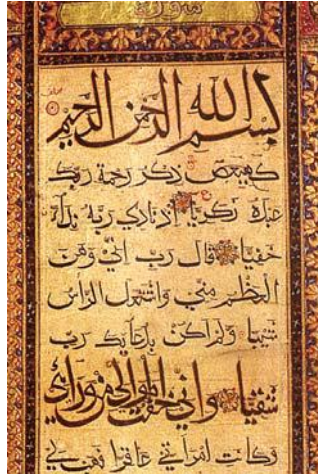 سورة
بسم الله الرحمن الرحيم
كهيعص ذكر رحمة ربك
عبده زكريا إذ نادى ربه نداء
خفيا قال رب اني وهن
العظم مني واشتعل الرأس
شيبا ولم اكن بدعائك رب
شقيا واني خفت الموالي من وراءي
وكانت امرأتي عاقرا فهب لي